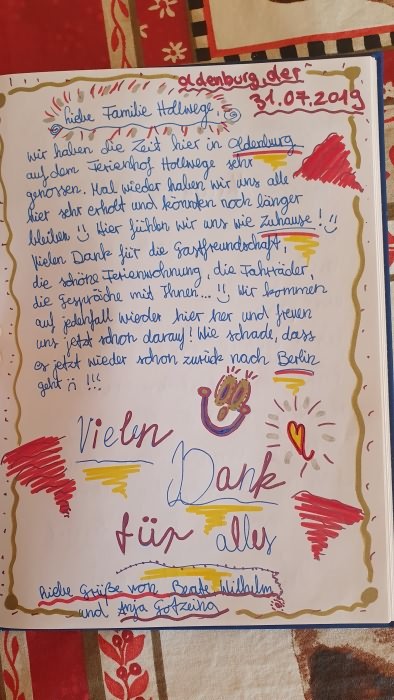 Oldenburg, der
31.07.2019
Liebe Familie Hollwege,
wir haben die Zeit hier in Oldenburg
auf dem Ferienhof Hollwege sehr
genossen. Mal wieder haben wir uns alle
hier sehr erholt und könnten noch länger
bleiben Hier fühlen wir uns wie Zuhause!
Vielen Dank für die Gastfreundschaft,
die schöne Ferienwohnung, die Fahrräder,
die Gespräche mit Ihnen... Wir kommen
auf jedenfall wieder hier her und freuen
uns jetzt schon darauf! Wie schade, dass
es jetzt wieder schon zurück nach Berlin
geht !!!
Vielen
Dank
für alles
Liebe Grüße von Beate Wilhelm
und Anja